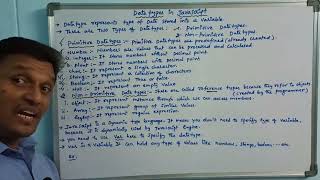 Data types in JavaScript
→ Data type represents type of Data stored into a Variable
→ There are Two Types of Data types - 1. Primitive Data types
2. Non-Primitive Data types
1. Primitive Data types :- Primitive Data types are predefined (already created).
Number :- Numbers are values that can be processed and calculated
Integer :- It stores numbers without decimal point
Float :- It stores numbers with decimal point
Char :- It represents a single character
String :- It represents a collection of characters
Boolean :- It
Null :- It represent an Empty Value
2. Non-Primitive Data types :- These are called reference types because they refer to objects
(created by the programmer)
1. object :- It represent instance through which we can access members
2. Array :- It represent group of Similar Values
3. RegExp :- It represent regular expression
→ JavaScript is a Dynamic type language, It means you don't need to specify type of Variable,
because it is dynamically used by JavaScript Engine.
→ You need to use Var here to specify the data type.
→ Var is a Variable It can hold any type of Values like Numbers, Strings, boolean ... etc
Ex: